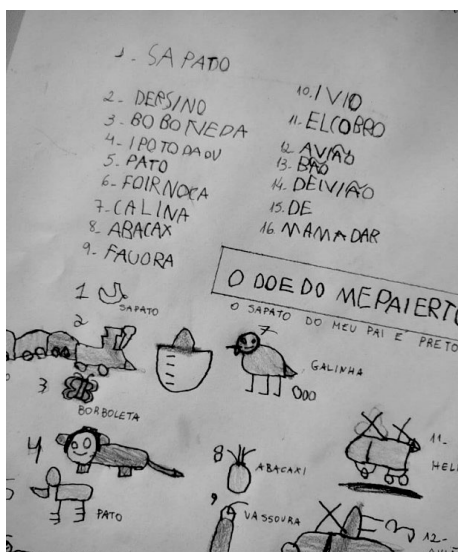 1- SAPATO
2- DERSINO
3- BOBONEDA
4- IPOTODAOU
5. PATO
6- FOIRNOCA
7- CALINA
8- ABACAX
9- FAUORA
10. IVIO
11. ELCOBRO
12. AVIÃO
13- BÃO
14- DEIVIÃO
15. DE
16 MAMADAR
O DOE DO MEPAIERTO
O SAPATO DO MEU PAI É PRETO
1
SAPATO
2
7-
GALINHA
3
BORBOLETA
4
8
ABACAXI
11-
HELI
5
PATO
9
VASSOURA
12-